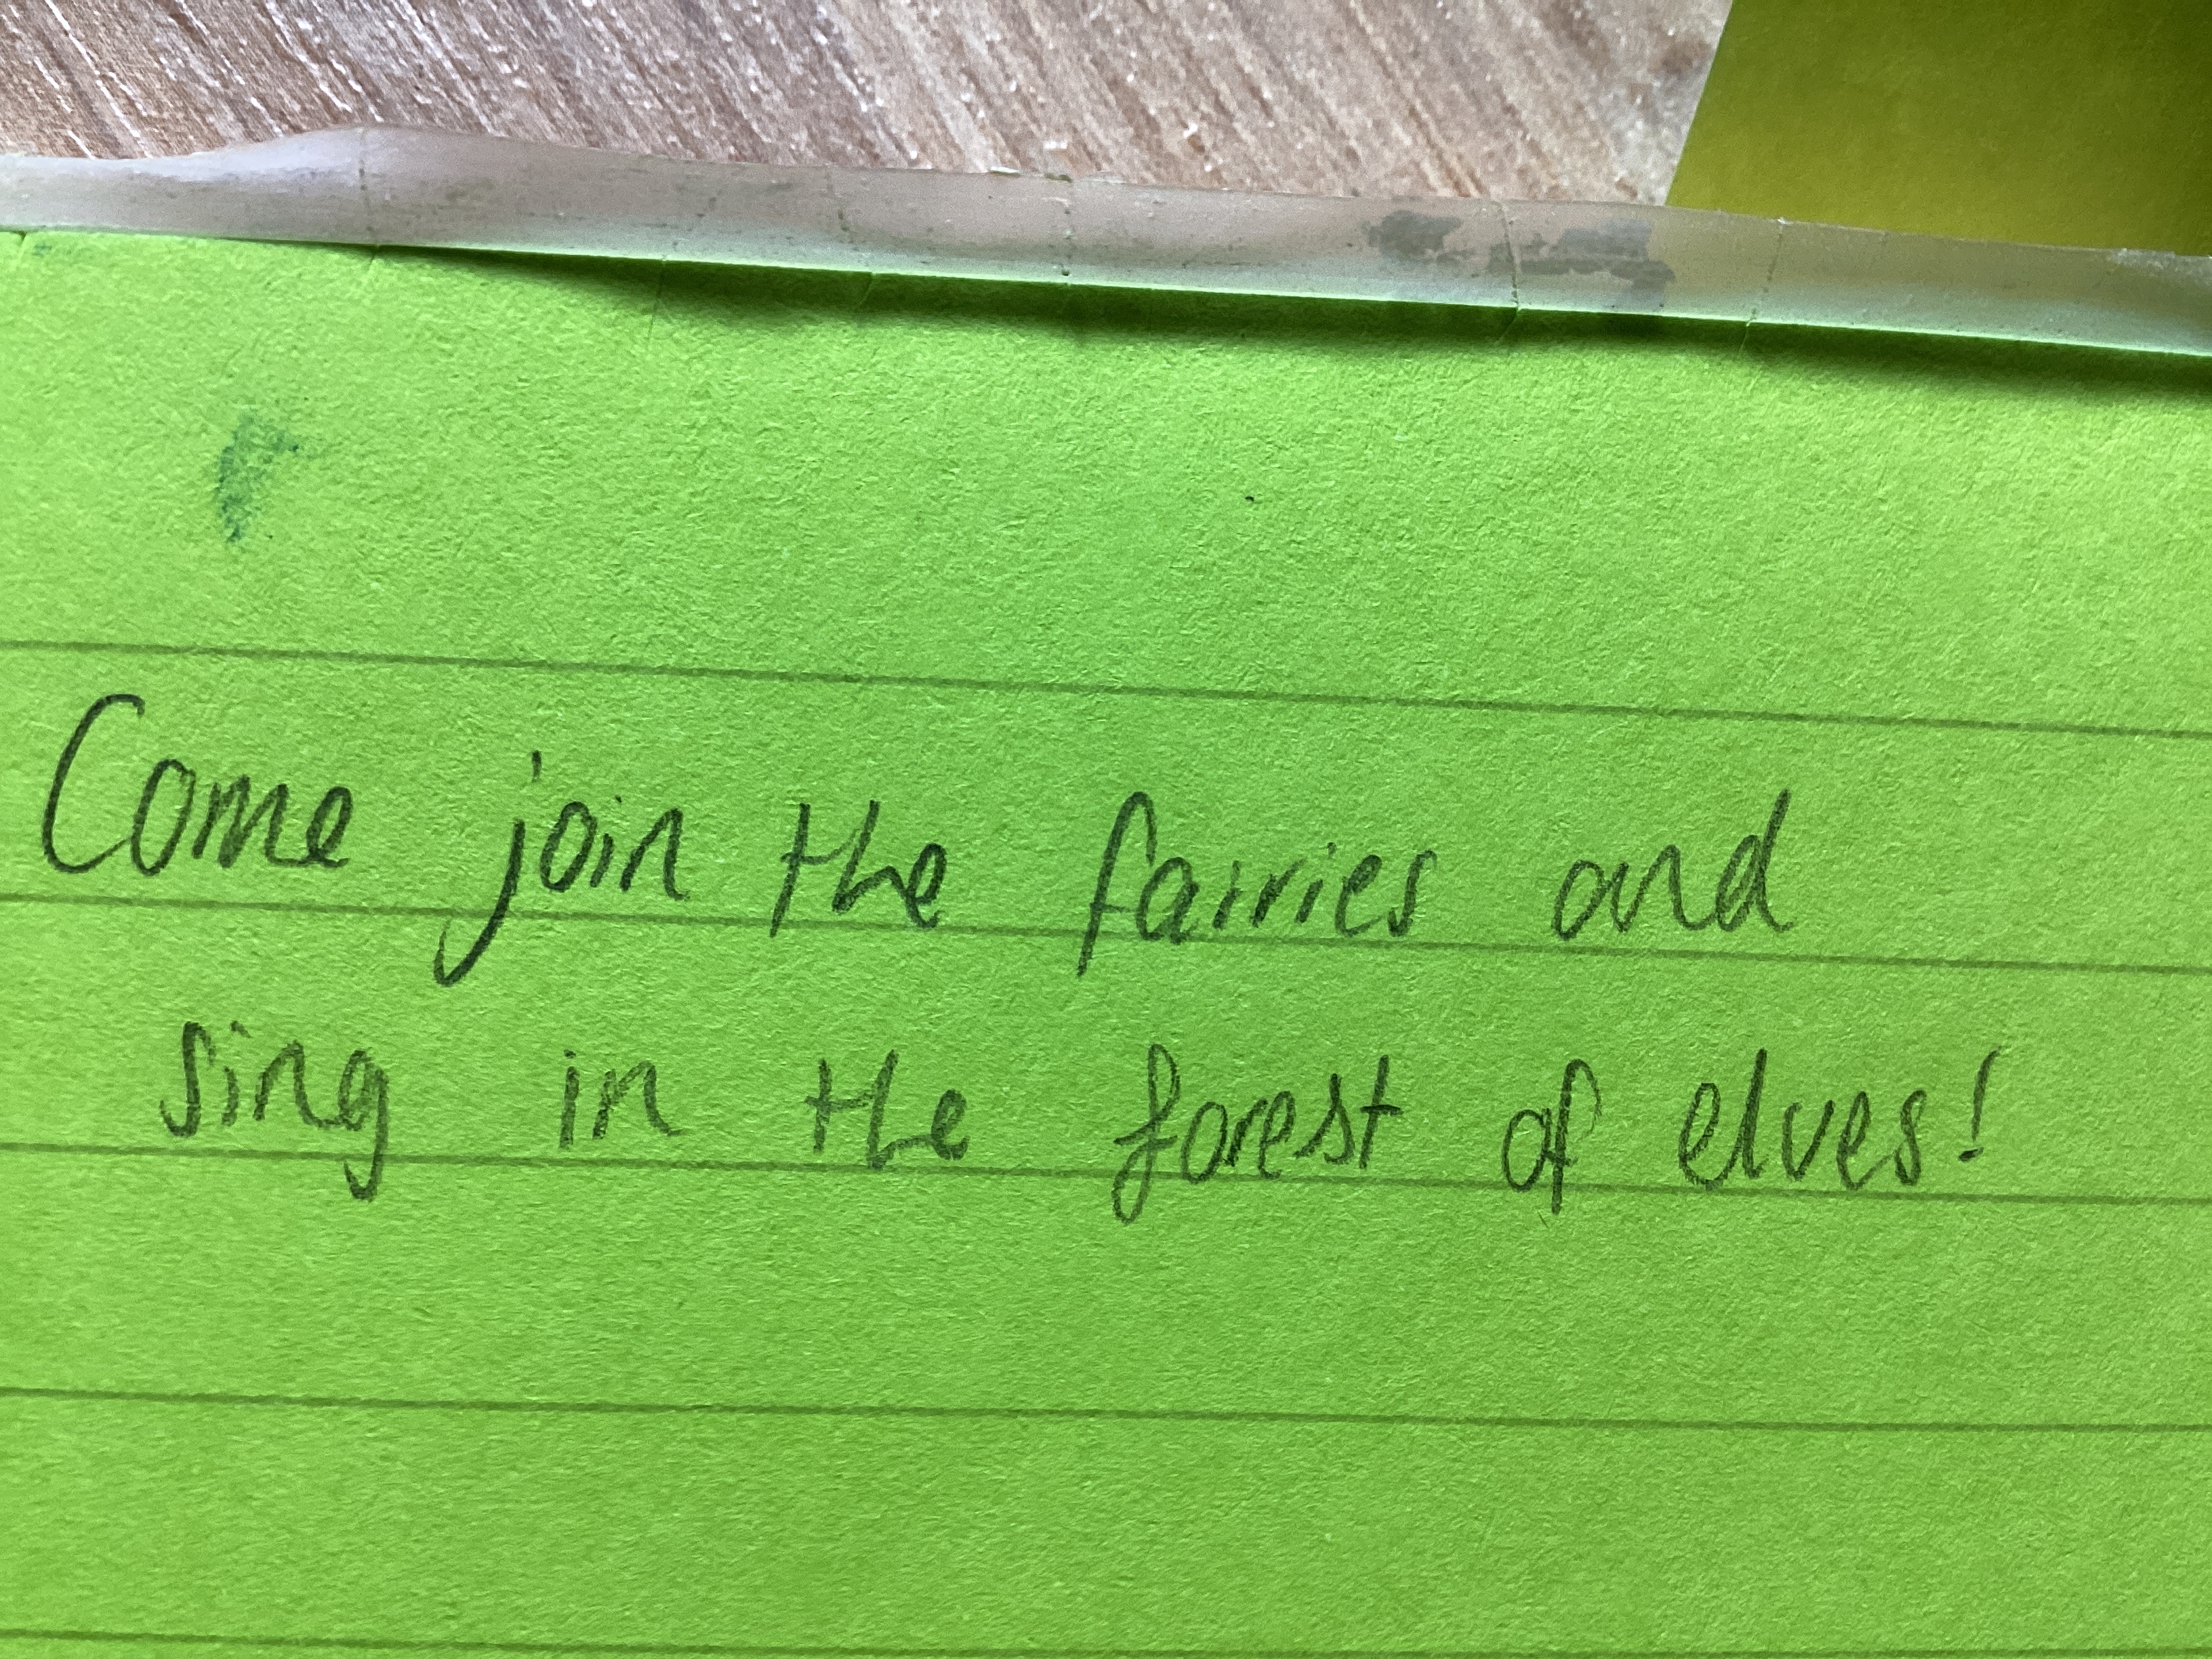 Come join the fairies and
sing in the forest of elves!